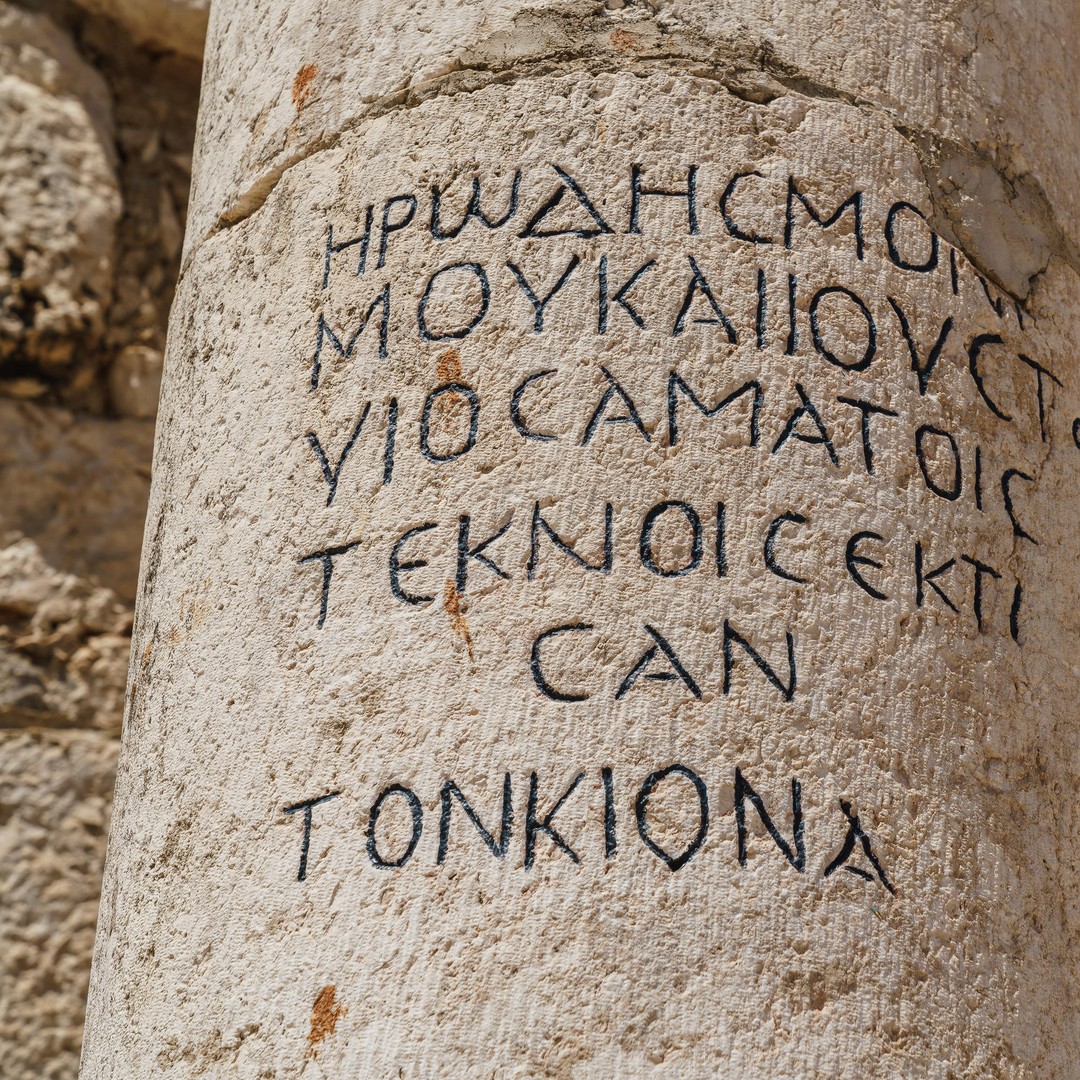 ΗΡΩΔΗΣΜΟ
ΜΟΥΚΑΙΙΟΥΣΤ
ΥΙΟΣΑΜΑΤΟΙΣ
ΤΕΚΝΟΙΣΕΚΤΙ
ΣΑΝ
ΤΟΝΚΙΟΝΑ